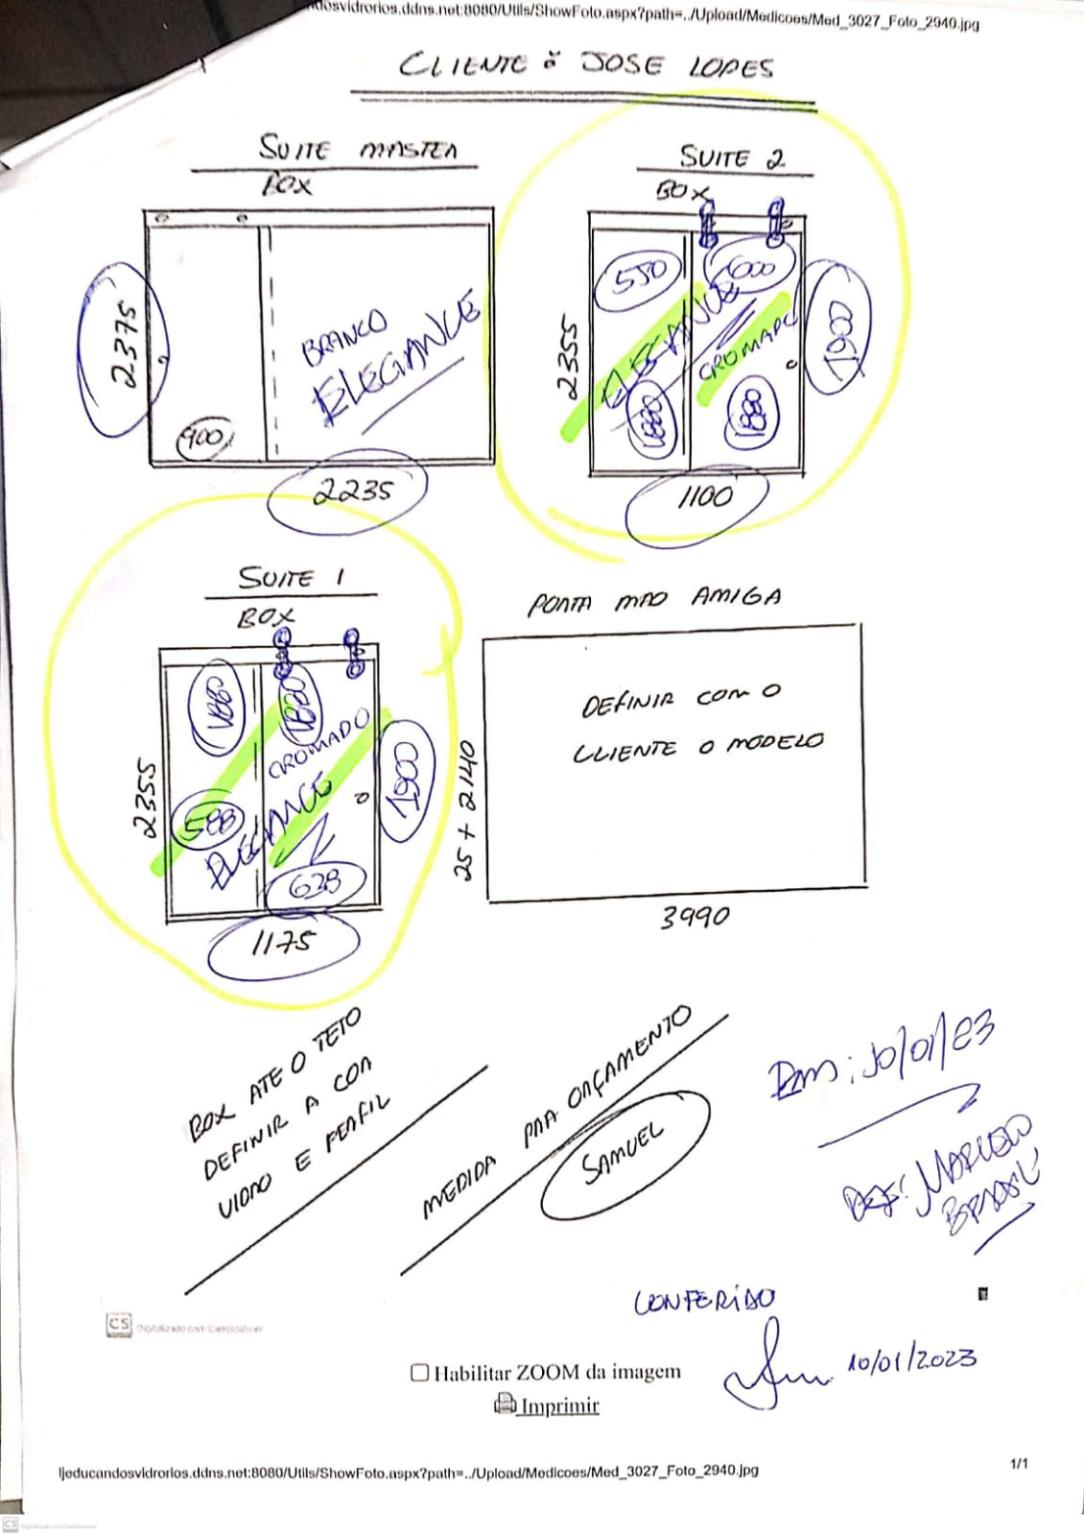 dosvidrorios.ddns.net:8080/Utils/ShowFoto.aspx?path=../Upload/Medicoes/Med_3027_Foto_2940.jpg
CLIENTE : JOSE LOPES
SUITE MASTER
BOX
2375
BRANCO
ELEGANCE
900
2235
SUITE 2
BOX
550
600
2355
ELEGANCE
CROMADO
1900
1880
1880
1100
SUITE 1
BOX
1880
1880
CROMADO
2355
588
ELEGANCE
1900
628
1175
PORTA MAO AMIGA
DEFINIR COM O
CLIENTE O MODELO
25 + 2140
3990
BOX ATE O TETO
DEFINIR A COR
VIDRO E PERFIL
MEDIDA PRA ORÇAMENTO
SAMUEL
Em: 10/01/23
MARCELO
BRASIL
CONFERIDO
10/01/2023
CS Digitalizado com CamScanner
Habilitar ZOOM da imagem
Imprimir
ljeducandosvidrorios.ddns.net:8080/Utils/ShowFoto.aspx?path=../Upload/Medicoes/Med_3027_Foto_2940.jpg
1/1
CS Digitalizado com CamScanner